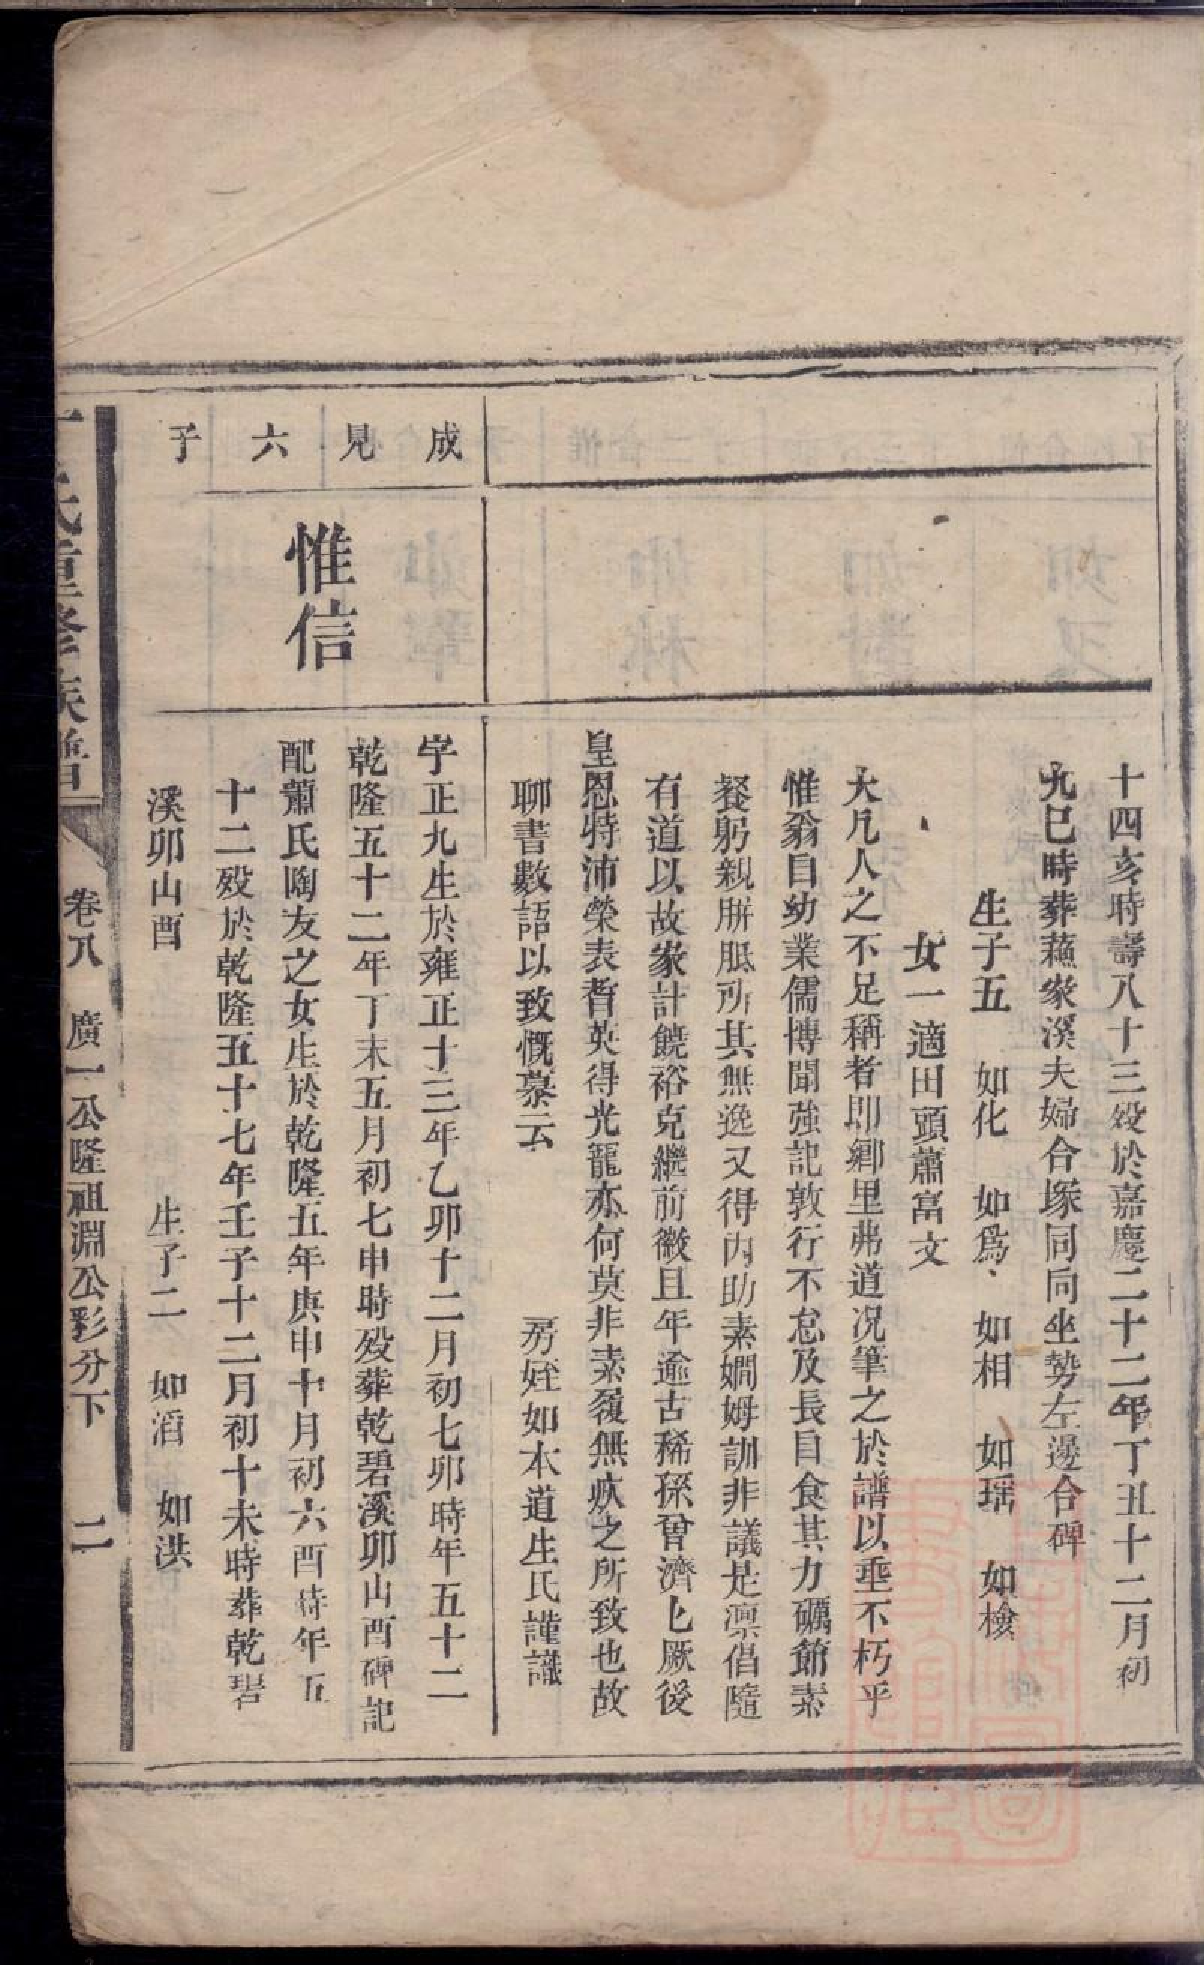 十四亥時壽八十三歿於嘉慶二十二年丁丑十二月初
九巳時葬蘓家溪夫婦合塚同向坐勢左邊合碑
生子五　如化　如爲　如相　如瑶　如檢
女一適田頭蕭富文
大凡人之不足稱者即鄉里弗道况筆之於譜以垂不朽乎
惟翁自幼業儒博聞強記敦行不怠及長自食其力礪節素
餐躬親胼胝所其無逸又得內助素嫻姆訓非議是凛倡隨
有道以故家計饒裕克繼前徽且年逾古稀孫曾濟匕厥後
皇恩特沛榮表耆英得光寵亦何莫非素履無疚之所致也故
聊書數語以致慨慕云　房姪如本道生氏謹識
成見六子
惟信
字正九生於雍正十三年乙卯十二月初七卯時年五十二
乾隆五十二年丁未五月初七申時歿葬乾碧溪卯山酉碑記
配蕭氏陶友之女生於乾隆五年庚申十月初六酉時年五
十二歿於乾隆五十七年壬子十二月初十未時葬乾碧
溪卯山酉　生子二　如酒　如洪
氏重修族譜　卷八　廣一公隆祖淵公彩分下　二